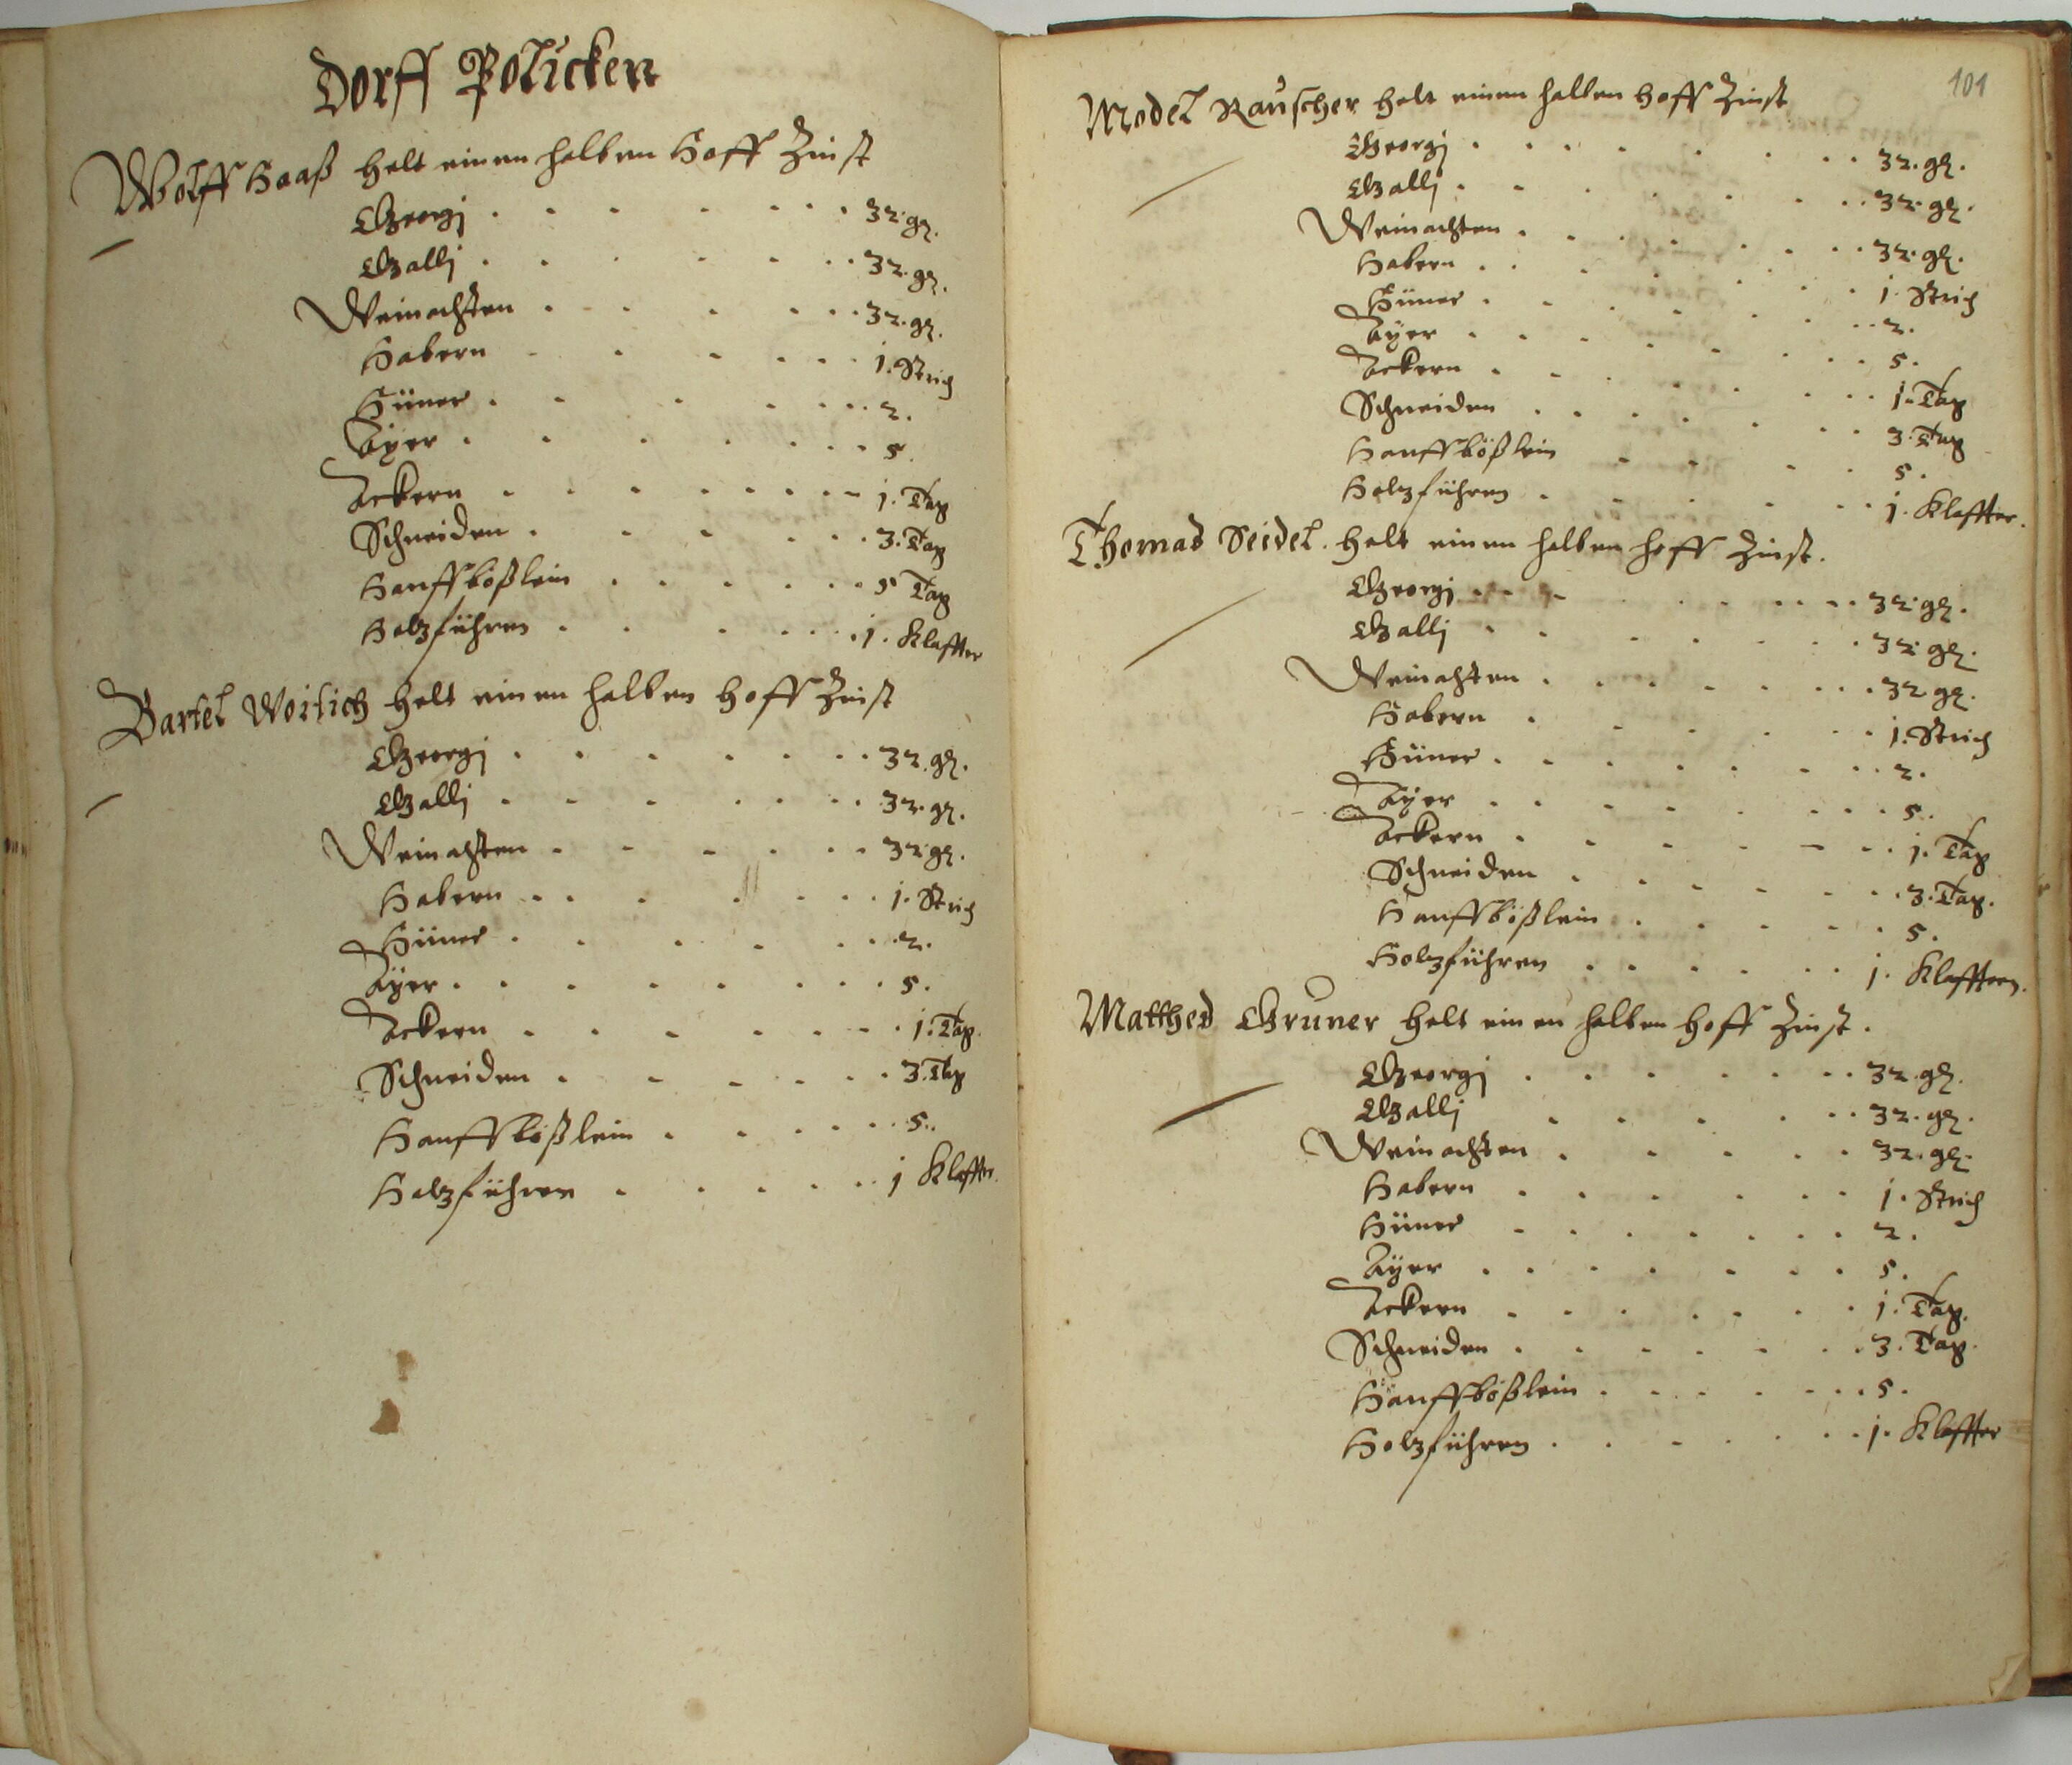 Dorff Policken
Wolff Haaß helt einen halben Hoff Zinst
Georgj . . . . . . . 32. gl.
Gallj . . . . . . . 32. gl.
Weinachten . . . . . . 32. gl.
Habern . . . . . . 1. Strich
Hüner . . . . . . 2.
Ayer . . . . . . . 5.
Ackern . . . . . . . . 1. Tag
Schneiden . . . . . . 3. Tag
Hanffbößlein . . . . . . 5 Tag
Holzführen . . . . . . . 1. Klaffter
Bartel Worlich helt einen halben Hoff Zinst
Georgj . . . . . . . 32. gl.
Gallj . . . . . . . 32. gl.
Weinachten . . . . . . 32 gl.
Habern . . . . . . . 1. Strich
Hüner . . . . . . . 2.
Ayer . . . . . . . . . 5.
Ackern . . . . . . . . 1. Tag.
Schneiden . . . . . . . 3. Tag
Hanffbößlein . . . . . . 5.
Holzführen . . . . . . 1 Klaffter.
101
Model Rauscher helt einen halben Hoff Zinst
Georgj . . . . . . . . 32. gl.
Gallj . . . . . . . 32. gl.
Weinachten . . . . . . . . 32. gl.
Habern . . . . . . . 1. Strich
Hüner . . . . . . . 2.
Ayer . . . . . . . . 5.
Ackern . . . . . . . . 1. Tag
Schneiden . . . . . . . 3. Tag
Hanffbößlein . . . . 5.
Holzführen . . . . . . 1. Klaffter.
Thomas Seidel. helt einen halben hoff Zinst.
Georgj . . . . . . . . . 32. gl.
Gallj . . . . . . . 32. gl.
Weinachten . . . . . . . . 32 gl.
Habern . . . . . . 1. Strich
Hüner . . . . . . . . 2.
Ayer . . . . . . . . 5.
Ackern . . . . . . . . 1. Tag
Schneiden . . . . . . . . 3. Tag.
Hanffbößlein . . . . . . 5.
Holzführen . . . . . . 1. Klafftern.
Matthes Gruner helt einen halben Hoff Zinst.
Georgj . . . . . . . 32. gl.
Gallj . . . . . . 32. gl.
Weinachten . . . . . 32. gl.
Habern . . . . . . . 1. Strich
Hüner . . . . . . . 2.
Ayer . . . . . . . . 5.
Ackern . . . . . . . 1. Tag.
Schneiden . . . . . . . 3. Tag.
Hanffbößlein . . . . . . . 5.
Holzführen . . . . . . . 1. Klaffter